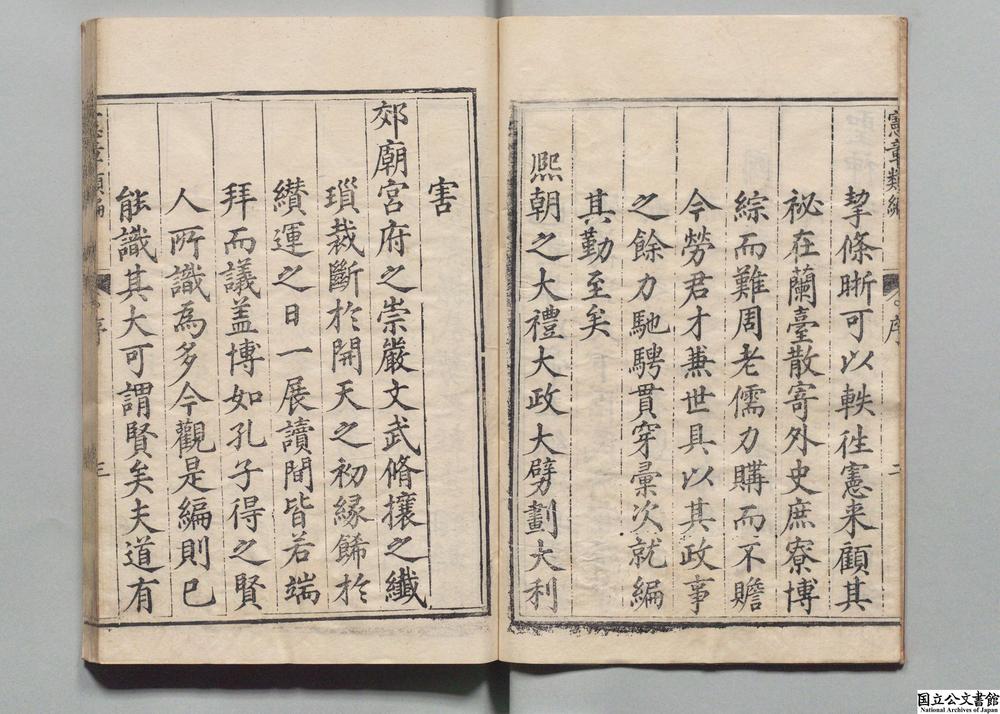 憲章類編
序
二
挈條晣可以軼徃憲来顧其
祕在蘭臺散寄外史庶寮博
綜而難周老儒力購而不贍
今勞君才兼世具以其政事
之餘力馳騁貫穿彚次就編
其勤至矣
熈朝之大禮大政大劈劃大利
害
郊廟宮府之崇嚴文武脩攘之纖
瑣裁斷於開天之初緣餙於
纘運之日一展讀間皆若端
拜而議盖博如孔子得之賢
人所識為多今觀是編則已
能識其大可謂賢矣夫道有
憲章類編
序
三
国立公文書館
National Archives of Japan